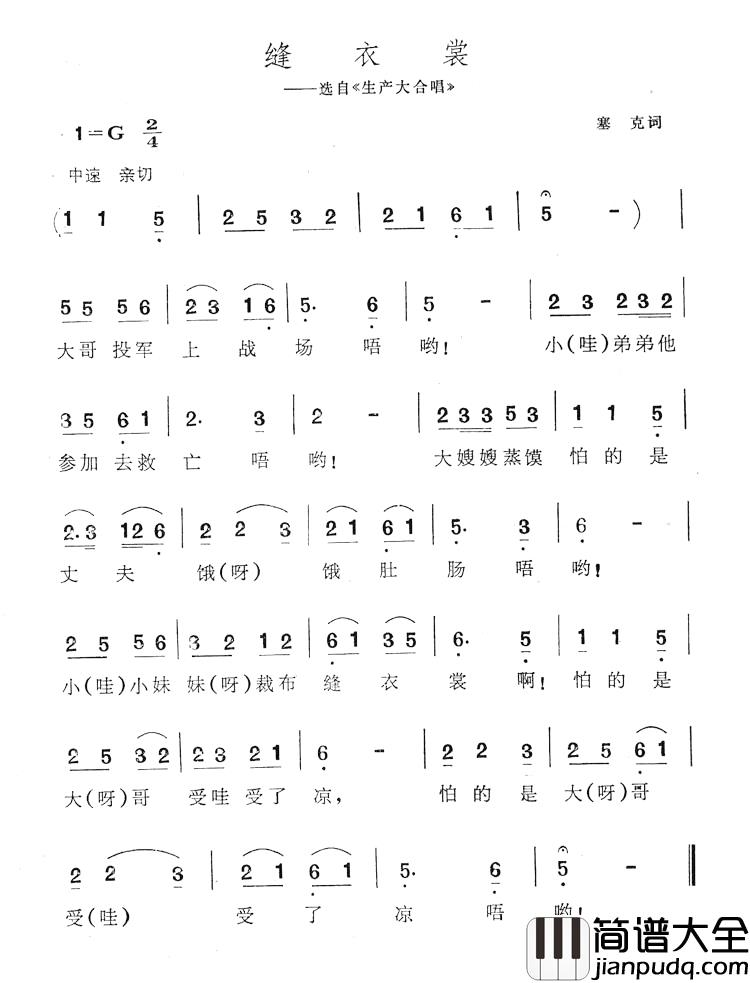 缝 衣 裳
——选自《生产大合唱》
1=G 2/4
塞 克词
中速 亲切
(1 1 5 | 2 5 3 2 | 2 1 6 1 | 5 - ) |
5 5 5 6 | 2 3 1 6 | 5. 6 | 5 - | 2 3 2 3 2 |
大哥 投军 上 战 场 唔 哟! 小(哇)弟弟他
3 5 6 1 | 2. 3 | 2 - | 2 3 3 5 3 | 1 1 5 |
参加 去救 亡 唔 哟! 大嫂嫂蒸馍 怕 的 是
2. 3 1 2 6 | 2 2 3 | 2 1 6 1 | 5. 3 | 6 - |
丈 夫 饿(呀) 饿 肚 肠 唔 哟!
2 5 5 6 | 3 2 1 2 | 6 1 3 5 | 6. 5 | 1 1 5 |
小(哇)小妹 妹(呀)裁布 缝 衣 裳 啊! 怕 的 是
2 5 3 2 | 2 3 2 1 | 6 - | 2 2 3 | 2 5 6 1 |
大(呀)哥 受哇 受了 凉, 怕 的 是 大(呀)哥
2 2 3 | 2 1 6 1 | 5. 6 | 5 - ‖
受(哇) 受 了 凉 唔 哟!
简谱大全
jianpudq.com